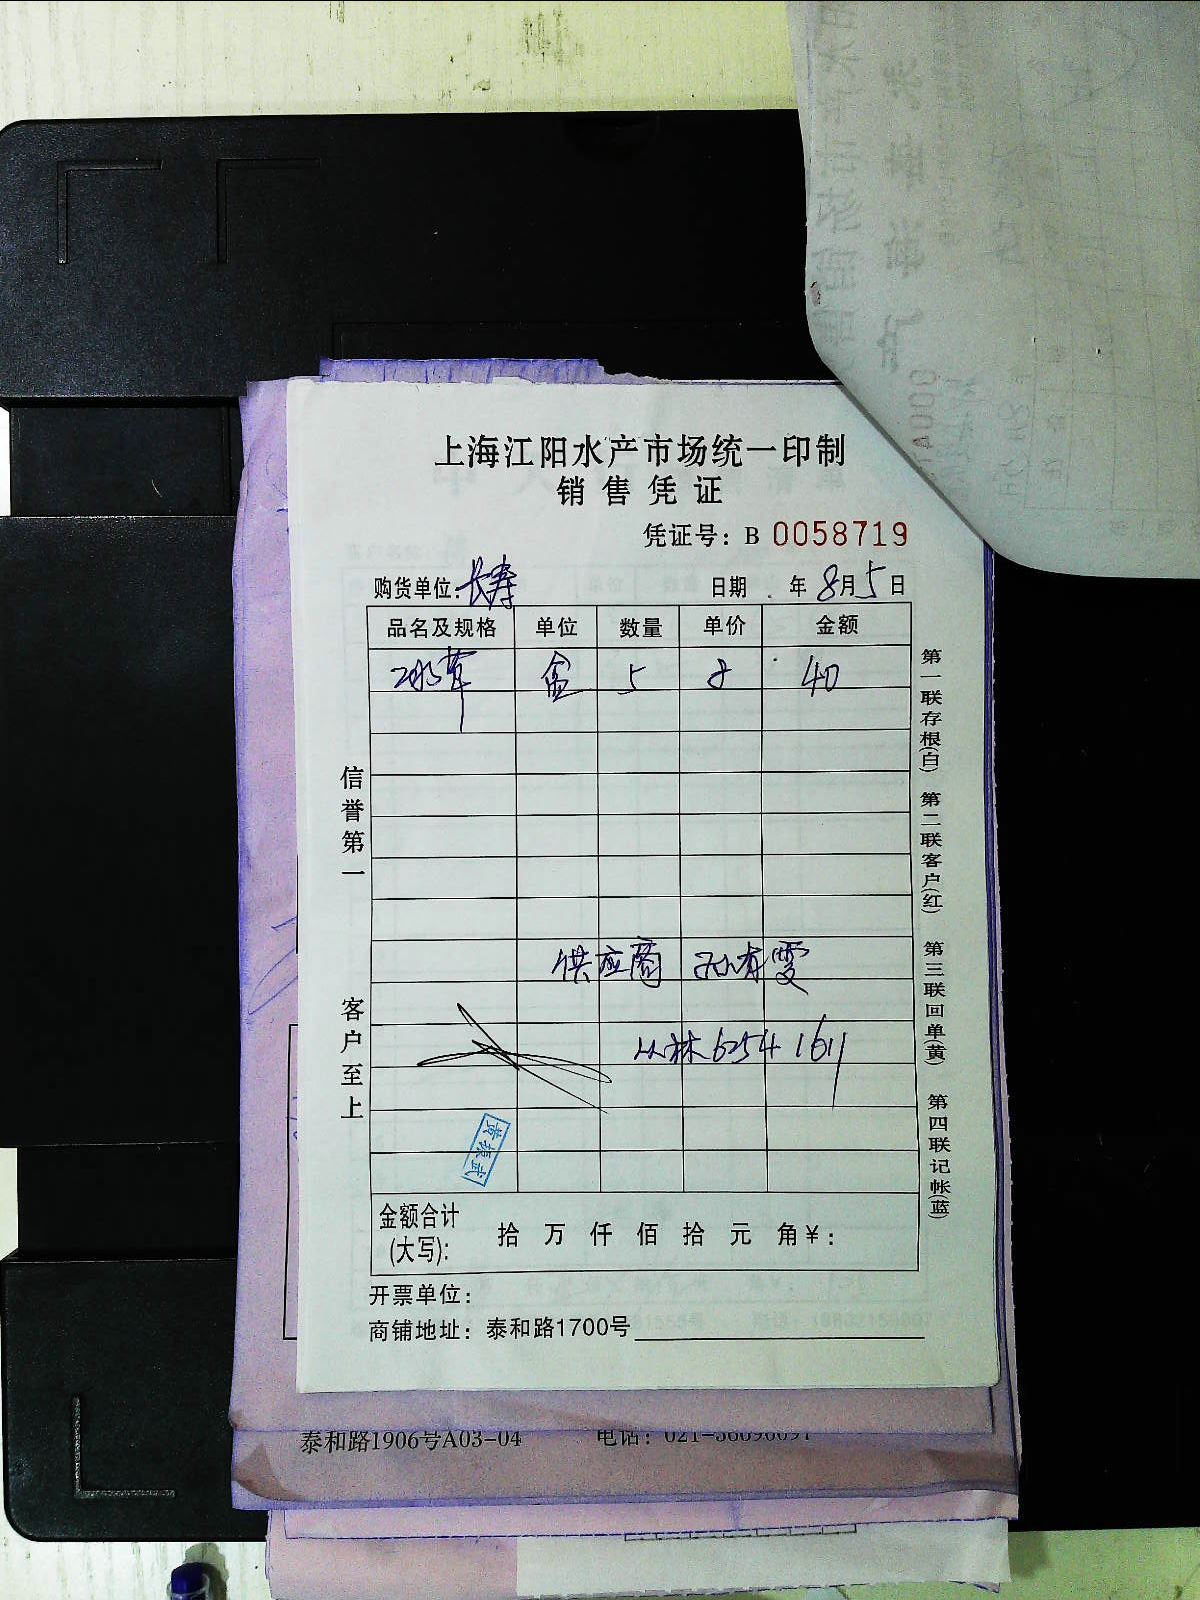 上海江阳水产市场统一印制
销售凭证
凭证号：B 0058719
购货单位：长寿 日期 年 8月5日
品名及规格 单位 数量 单价 金额
冰草 盒 5 8 40
供应商 孙有雯
丛林 6254 1611
信誉第一
客户至上
第一联存根(白) 第二联客户(红) 第三联回单(黄) 第四联记帐(蓝)
金额合计(大写)： 拾 万 仟 佰 拾 元 角￥：
开票单位：
商铺地址：泰和路1700号
泰和路1906号A03-04 电话：021-